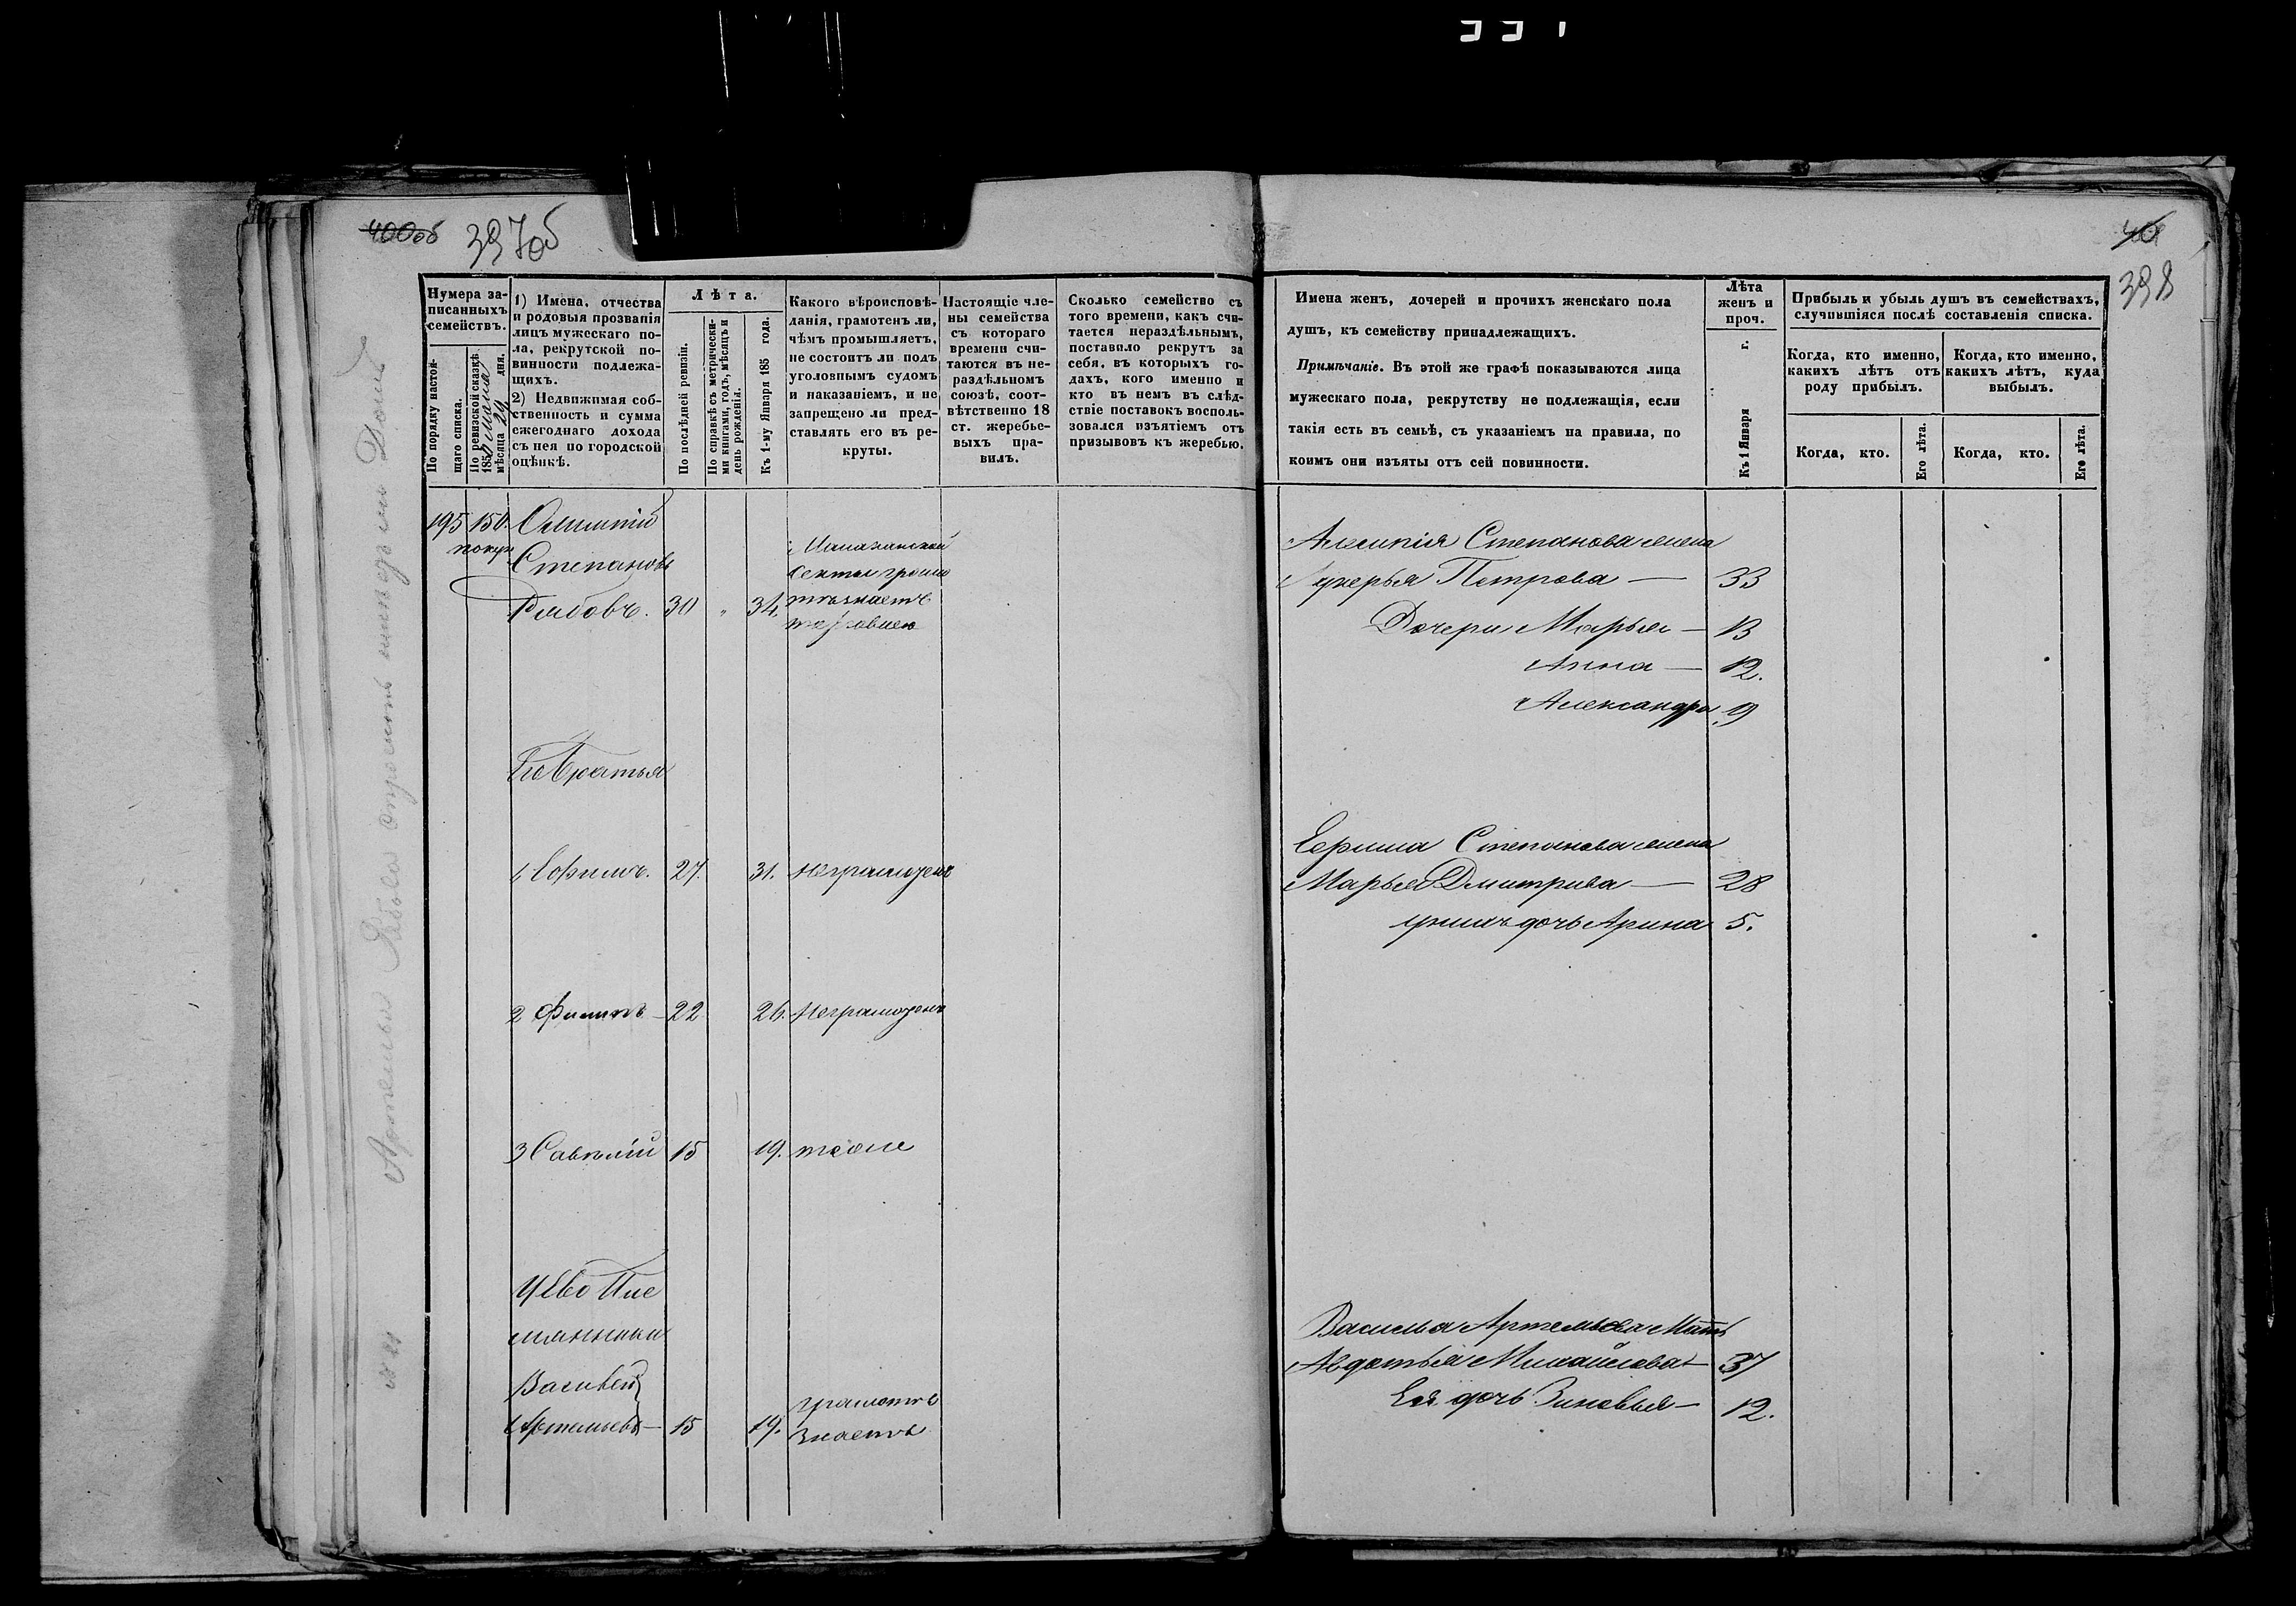 400об 397об
Нумера за-
писанныхъ
семействъ.
По порядку настоя-
щаго списка.
По ревизской сказкѣ
1850 мѣсяца дня.
29
1) Имена, отчества
и родовыя прозванія
лицъ мужескаго по-
ла, рекрутской по-
винности подлежа-
щихъ.
2) Недвижимая соб-
ственность и сумма
ежегоднаго дохода
съ нея по городской
оцѣнкѣ.
Лѣта.
По послѣдней ревизіи.
По справкѣ съ метрически-
ми книгами, годъ, мѣсяцъ и
день рожденія.
Къ 1-му Января 185 года.
Какого вѣроисповѣ-
данія, грамотенъ ли,
чѣмъ промышляетъ,
не состоитъ ли подъ
уголовнымъ судомъ
и наказаніемъ, и не
запрещено ли пред-
ставлять его въ ре-
круты.
Настоящіе чле-
ны семейства
съ котораго
времени счи-
таются въ не-
раздѣльномъ
союзѣ, соот-
вѣтственно 18
ст. жеребье-
выхъ пра-
вилъ.
Сколько семейство съ
того времени, какъ счи-
тается нераздѣльнымъ,
поставило рекрутъ за
себя, въ которыхъ го-
дахъ, кого именно и
кто въ немъ въ слѣд-
ствіе поставокъ восполь-
зовался изъятіемъ отъ
призывовъ къ жеребью.
195 150.
Степановъ
Рябовъ. 30 „ 34.
секты грамо
тѣ знаетъ
торговлею
Его Братья
1, Ефимъ. 27. 31. Неграмотенъ
2 Филипъ — 22 26. Неграмотенъ
3 Савелій 15 19. тоже
Ево Пле
мянники
Василей
Артемьевъ — 15 19. грамотѣ
знаетъ
398
Имена женъ, дочерей и прочихъ женскаго пола
душъ, къ семейству принадлежащихъ.
Примѣчаніе. Въ этой же графѣ показываются лица
мужескаго пола, рекрутству не подлежащія, если
такія есть въ семьѣ, съ указаніемъ на правила, по
коимъ они изъяты отъ сей повинности.
Лѣта
женъ и
проч.
Къ 1 Января г.
Прибыль и убыль душъ въ семействахъ,
случившіяся послѣ составленія списка.
Когда, кто именно,
какихъ лѣтъ отъ
роду прибылъ.
Когда, кто именно,
какихъ лѣтъ, куда
выбылъ.
Когда, кто.
Его лѣта.
Когда, кто.
Его лѣта.
Степанова жена
Лукерья Петрова — 33
Дочери Марья — 13
Анна — 12.
Александра 9
Ефима Степанова жена
Марья Дмитріева — 28
у нихъ дочь Арина 5.
Василья Артемьева Мать
Авдотья Михайлова — 37
Ея дочь Зиновья — 12.